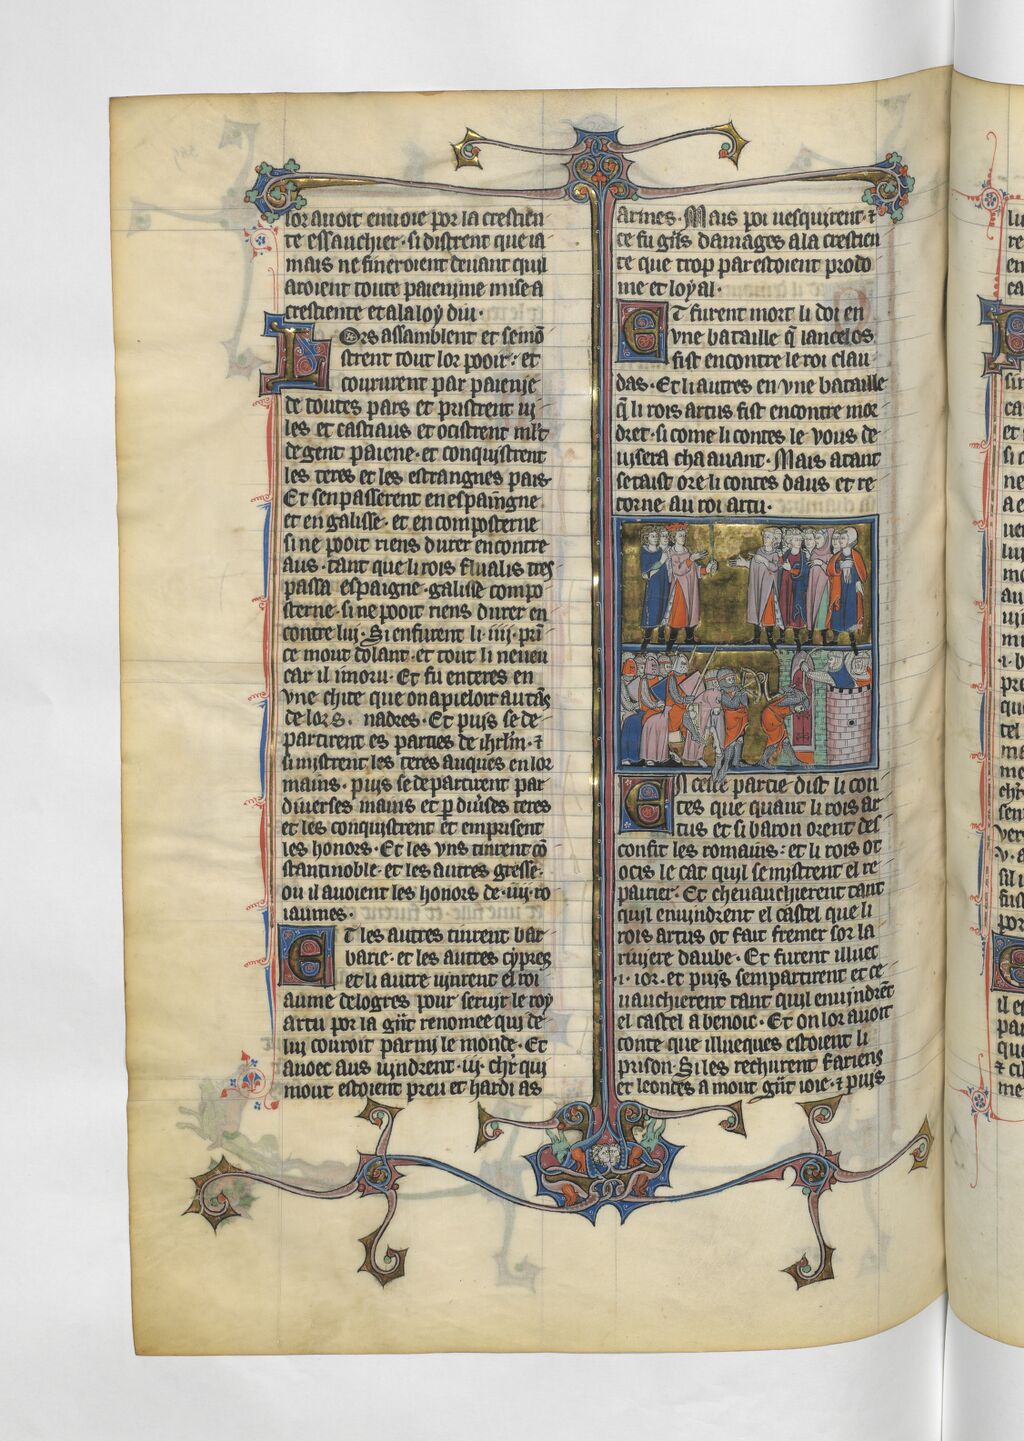 lor auoit enuoie por la crestien
te essauchier · si distrent que ia
mais ne fineroient deuant quil
aroient toute paienime mise a
crestiente et a la loy diu ·
Lors assamblent et semō
strent tout lor pooir : et
coururent par paienie
de toutes pars et pristrent vi
les et castiaus et ocistrent ml't
de gent paiene · et conquistrent
les teres et les estrangnes pais ·
Et sen passerent en espaingne
et en galisse · et en composterne
si ne pooit riens durer encontre
aus · tant que li rois flualis tres
passa espaigne · galisse compo
sterne · si ne pooit riens durer en
contre lui · Si en furent li · iiij · prī
ce mout dolant · et tout li neueu
car il imoru · Et fu enteres en
vne chite que on apieloit au tās
de lors nadres · Et puis se de
partirent es parties de ihrlm̄ · ⁊
si mistrent les teres auques en lor
mains · puis se departirent par
diuerses mains et ꝑ diũses teres
et les conquistrent et emprisent
les honors · Et les vns tinrent cō
stantinoble · et les autres gresse ·
ou il auoient les honors de · iiij · ro
iaumes ·
Et les autres tinrent bar
barie · et les autres cypres
et li autre uinrent el roi
aume delogres pour seruir le roy
artu por la gūt renomee qui de
lui couroit parmi le monde · Et
auoec aus uindrent · iij · chr̄ qui
mout estoient preu et hardi as
armes · Mais poi uesquirent · ⁊
ce fu gn̄s damages a la crestien
te que trop par estoient prodo
me et loyal ·
Et furent mort li doi en
vne bataille q̄ lancelos
fist encontre le roi clau
das · Et li autres en vne bataille
q̄ li rois artus fist encontre mor
dret · si come li contes le vous de
uisera cha auant · Mais atant
se taist ore li contes daus et re
torne au roi artu ·
En ceste partie dist li con
tes que quant li rois ar
tus et si baron orent des
confit les romains : et li rois ot
ocis le cat quil se mistrent el re
pairier · Et cheuauchierent tant
quil enuindrent el castel que li
rois artus ot fait fremer sor la
riuiere daube · Et furent illuec
· i · ior · et puis sempartirent et ce
uauchierent tant quil enuindrēt
el castel a benoic · Et on lor auoit
conte que illueques estoient li
prison · Si les rechurent fariens
et leonces a mout gūt ioie · ⁊ puis